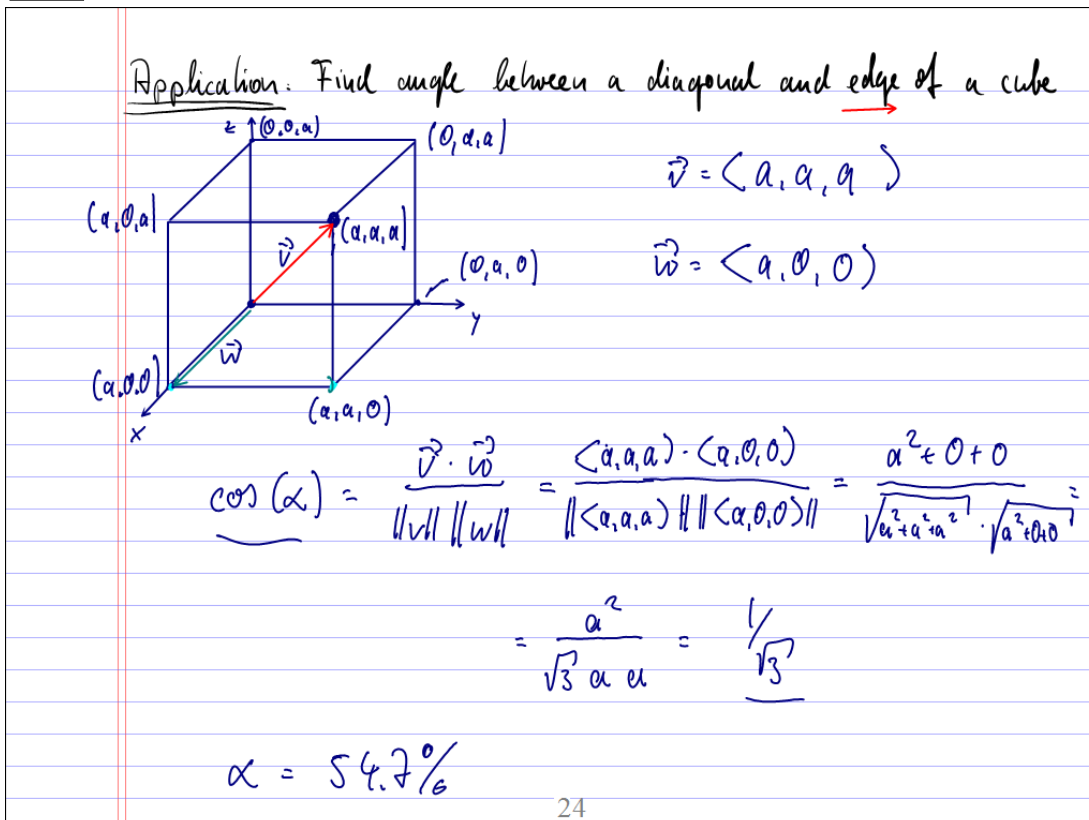 Application: Find angle between a diagonal and edge of a cube
z (0,0,a) (0,a,a)
v⃗ = <a, a, a>
(a,0,a) (a,a,a)
v⃗ (0,a,0) w⃗ = <a, 0, 0>
y
w⃗
(a,0,0) (a,a,0)
x
cos(α) = v⃗ · w⃗ / ||v|| ||w|| = <a,a,a> · <a,0,0> / ||<a,a,a>|| ||<a,0,0>|| = a² + 0 + 0 / √(a²+a²+a²) · √(a²+0+0) =
= a² / √3 a a = 1/√3
α = 54.7%
24